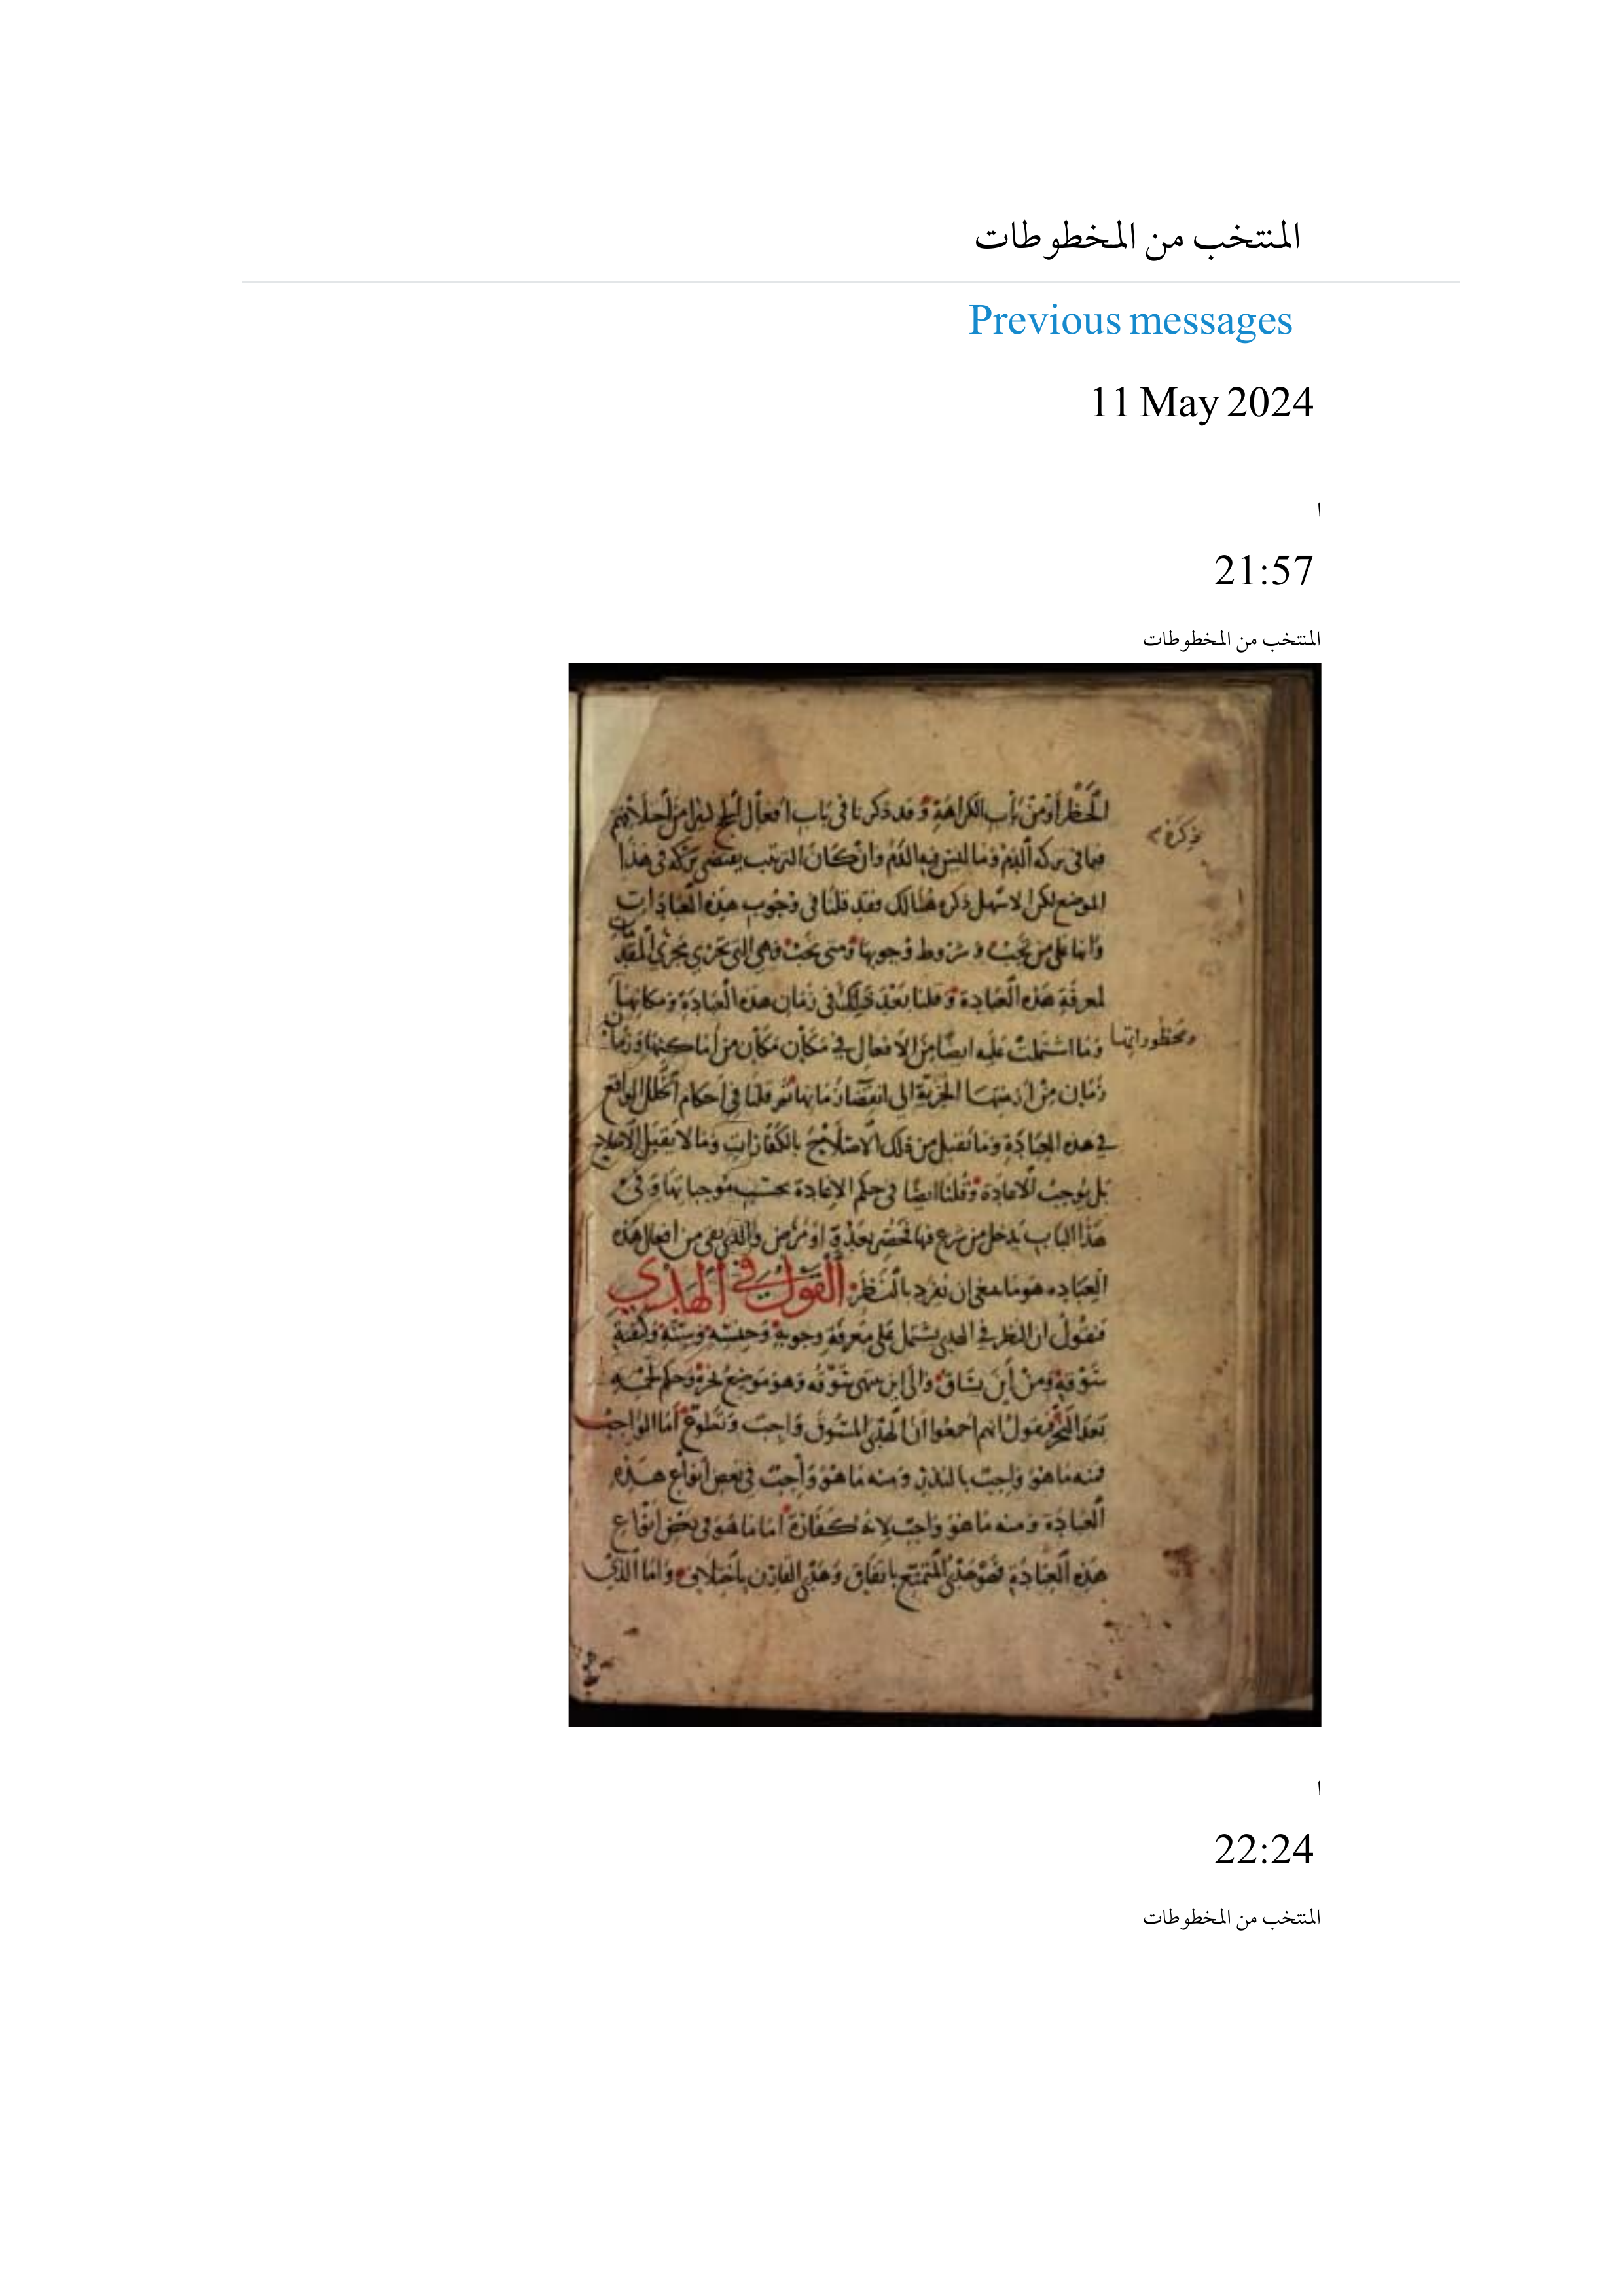 المنتخب من المخطوطات
Previous messages
11 May 2024
ا
21:57
المنتخب من المخطوطات
الحظر أو من باب الكراهة وقد ذكرنا في باب افعال الحج
ذكره
فيما في تركه الدم وما ليس فيه الدم وان كان الترتيب يقتضي تركه في هذا
الموضع لكن الاسهل ذكره هنالك فقد قلنا في وجوب هذه العبادات
وانها على من تجب وشروط وجوبها ومتى تجب فهي التي تجري مجرى المقدمات
لمعرفة هذه العبادة وقلنا بعد ذلك في زمان هذه العبادة ومكانها
ومحظوراتها
وما اشتملت عليه ايضا من الافعال في مكان مكان من اماكنها وزمان
زمان من ازمنتها الجزئية الى انقضاء زمانها ثم قلنا في احكام التحلل الواقع
في هذه العبادة وما تقبل من ذلك الاصلاح بالكفارات وما لا تقبل الاصلاح
بل يوجب الاعادة وقلنا ايضا في حكم الاعادة بحسب موجباتها وفي
هذا الباب يدخل من شرع فيها فاحصر بعدو او مرض والذي بقي من افعال هذه
العباده هو ما ينبغي ان نفرد بالنظر القول في الهدي
فنقول ان النظر في الهدي يشتمل على معرفة وجوبه وجنسه وسنه وكيفية
سوقه ومن أين يساق والى اين ينتهي سوقه وهو موضع نحره وحكم لحمه
بعد النحر فنقول انهم اجمعوا أن الهدي المسوق واجب وتطوع أما الواجب
فمنه ما هو واجب بالنذر ومنه ما هو واجب في بعض أنواع هذه
العبادة ومنه ما هو واجب لانه كفارة اما ما هو في بعض انواع
هذه العبادة فهو هدي المتمتع باتفاق وهدي القارن باختلاف واما الذي
ا
22:24
المنتخب من المخطوطات